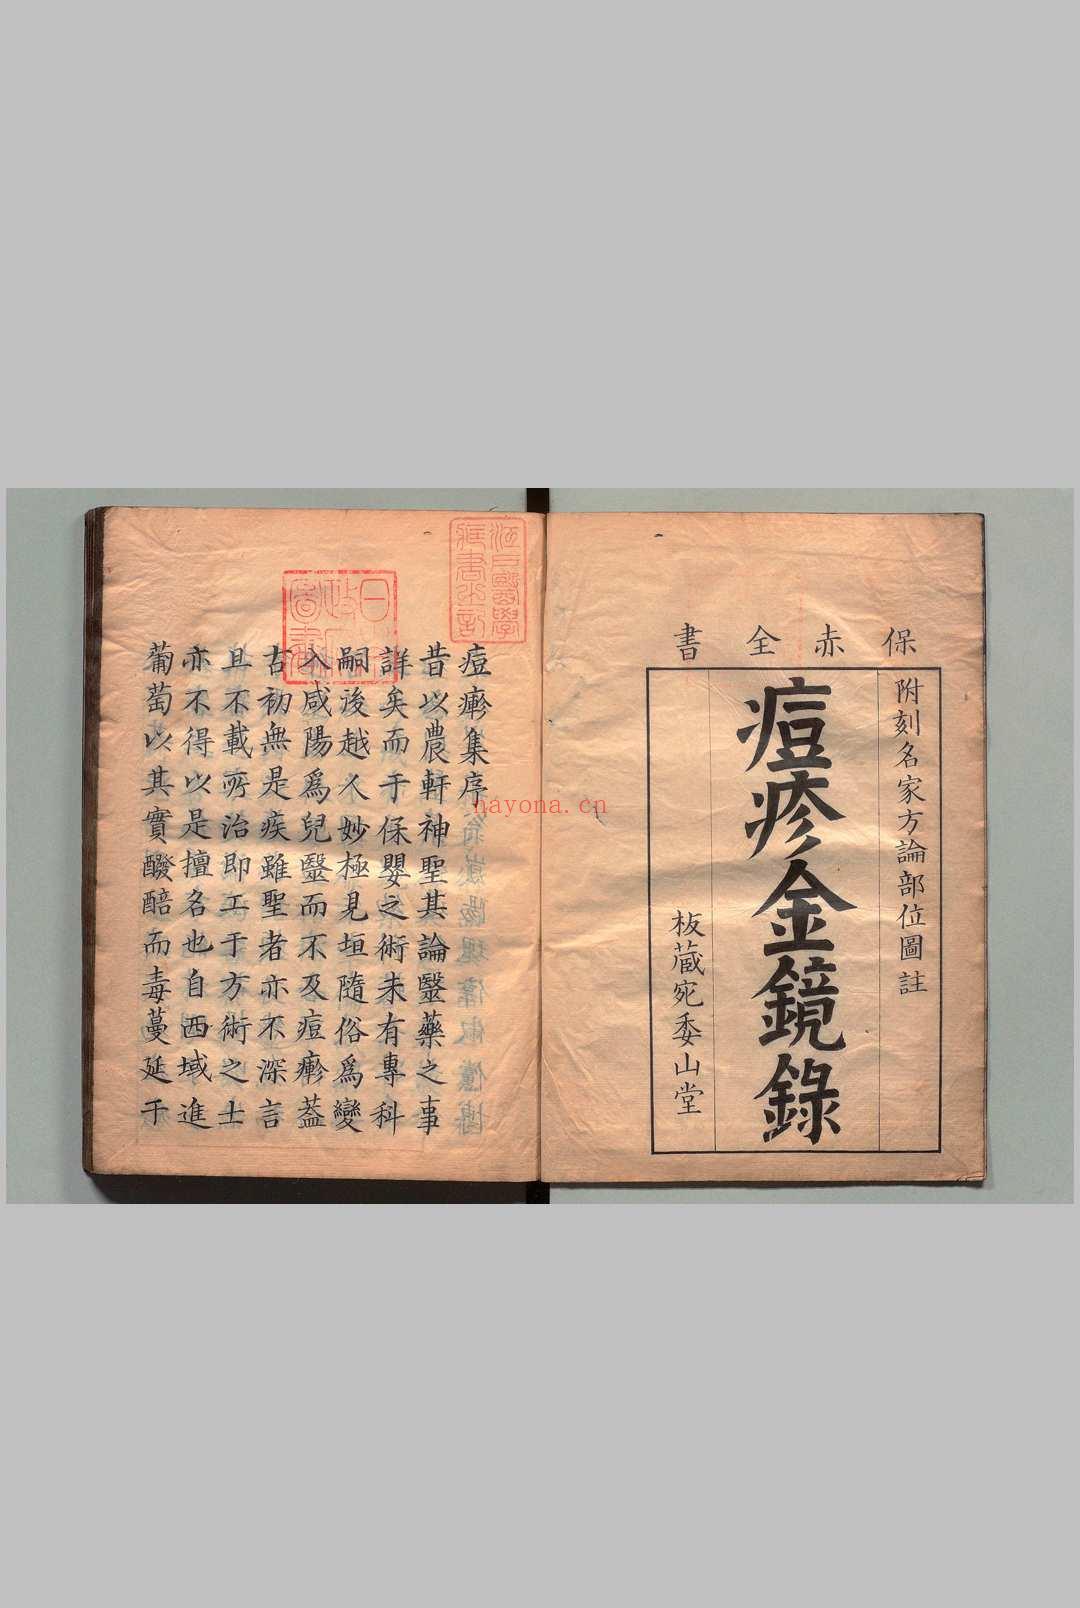 保赤全書
附刻名家方論部位圖註
痘疹金鏡錄
板蔵宛委山堂
痘疹集序
昔以農軒神聖其論醫藥之事
詳矣而于保嬰之術未有專科
嗣後越人妙極見垣隨俗爲變
入咸陽爲兒醫而不及痘疹葢
古初無是疾雖聖者亦不深言
且不載所治即工于方術之士
亦不得以是擅名也自西域進
葡萄以其實醱醅而毒蔓延于
江戶醫學
藏書之記
日本
政府
圖書
nayona.cn